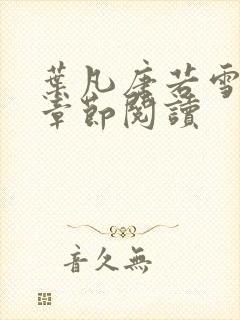 葉凡唐若雪
章節閱讀
音久無